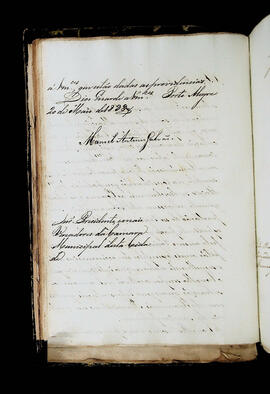 a Vm.ces que estão dadas as providencias.
Deos Guarde a Vm.ces Porto Alegre
20 de Maio de 183
Manoel Antonio Galvão
Snr.s Presidente, e mais
Vereadores da Camara
Municipal desta Cida
de